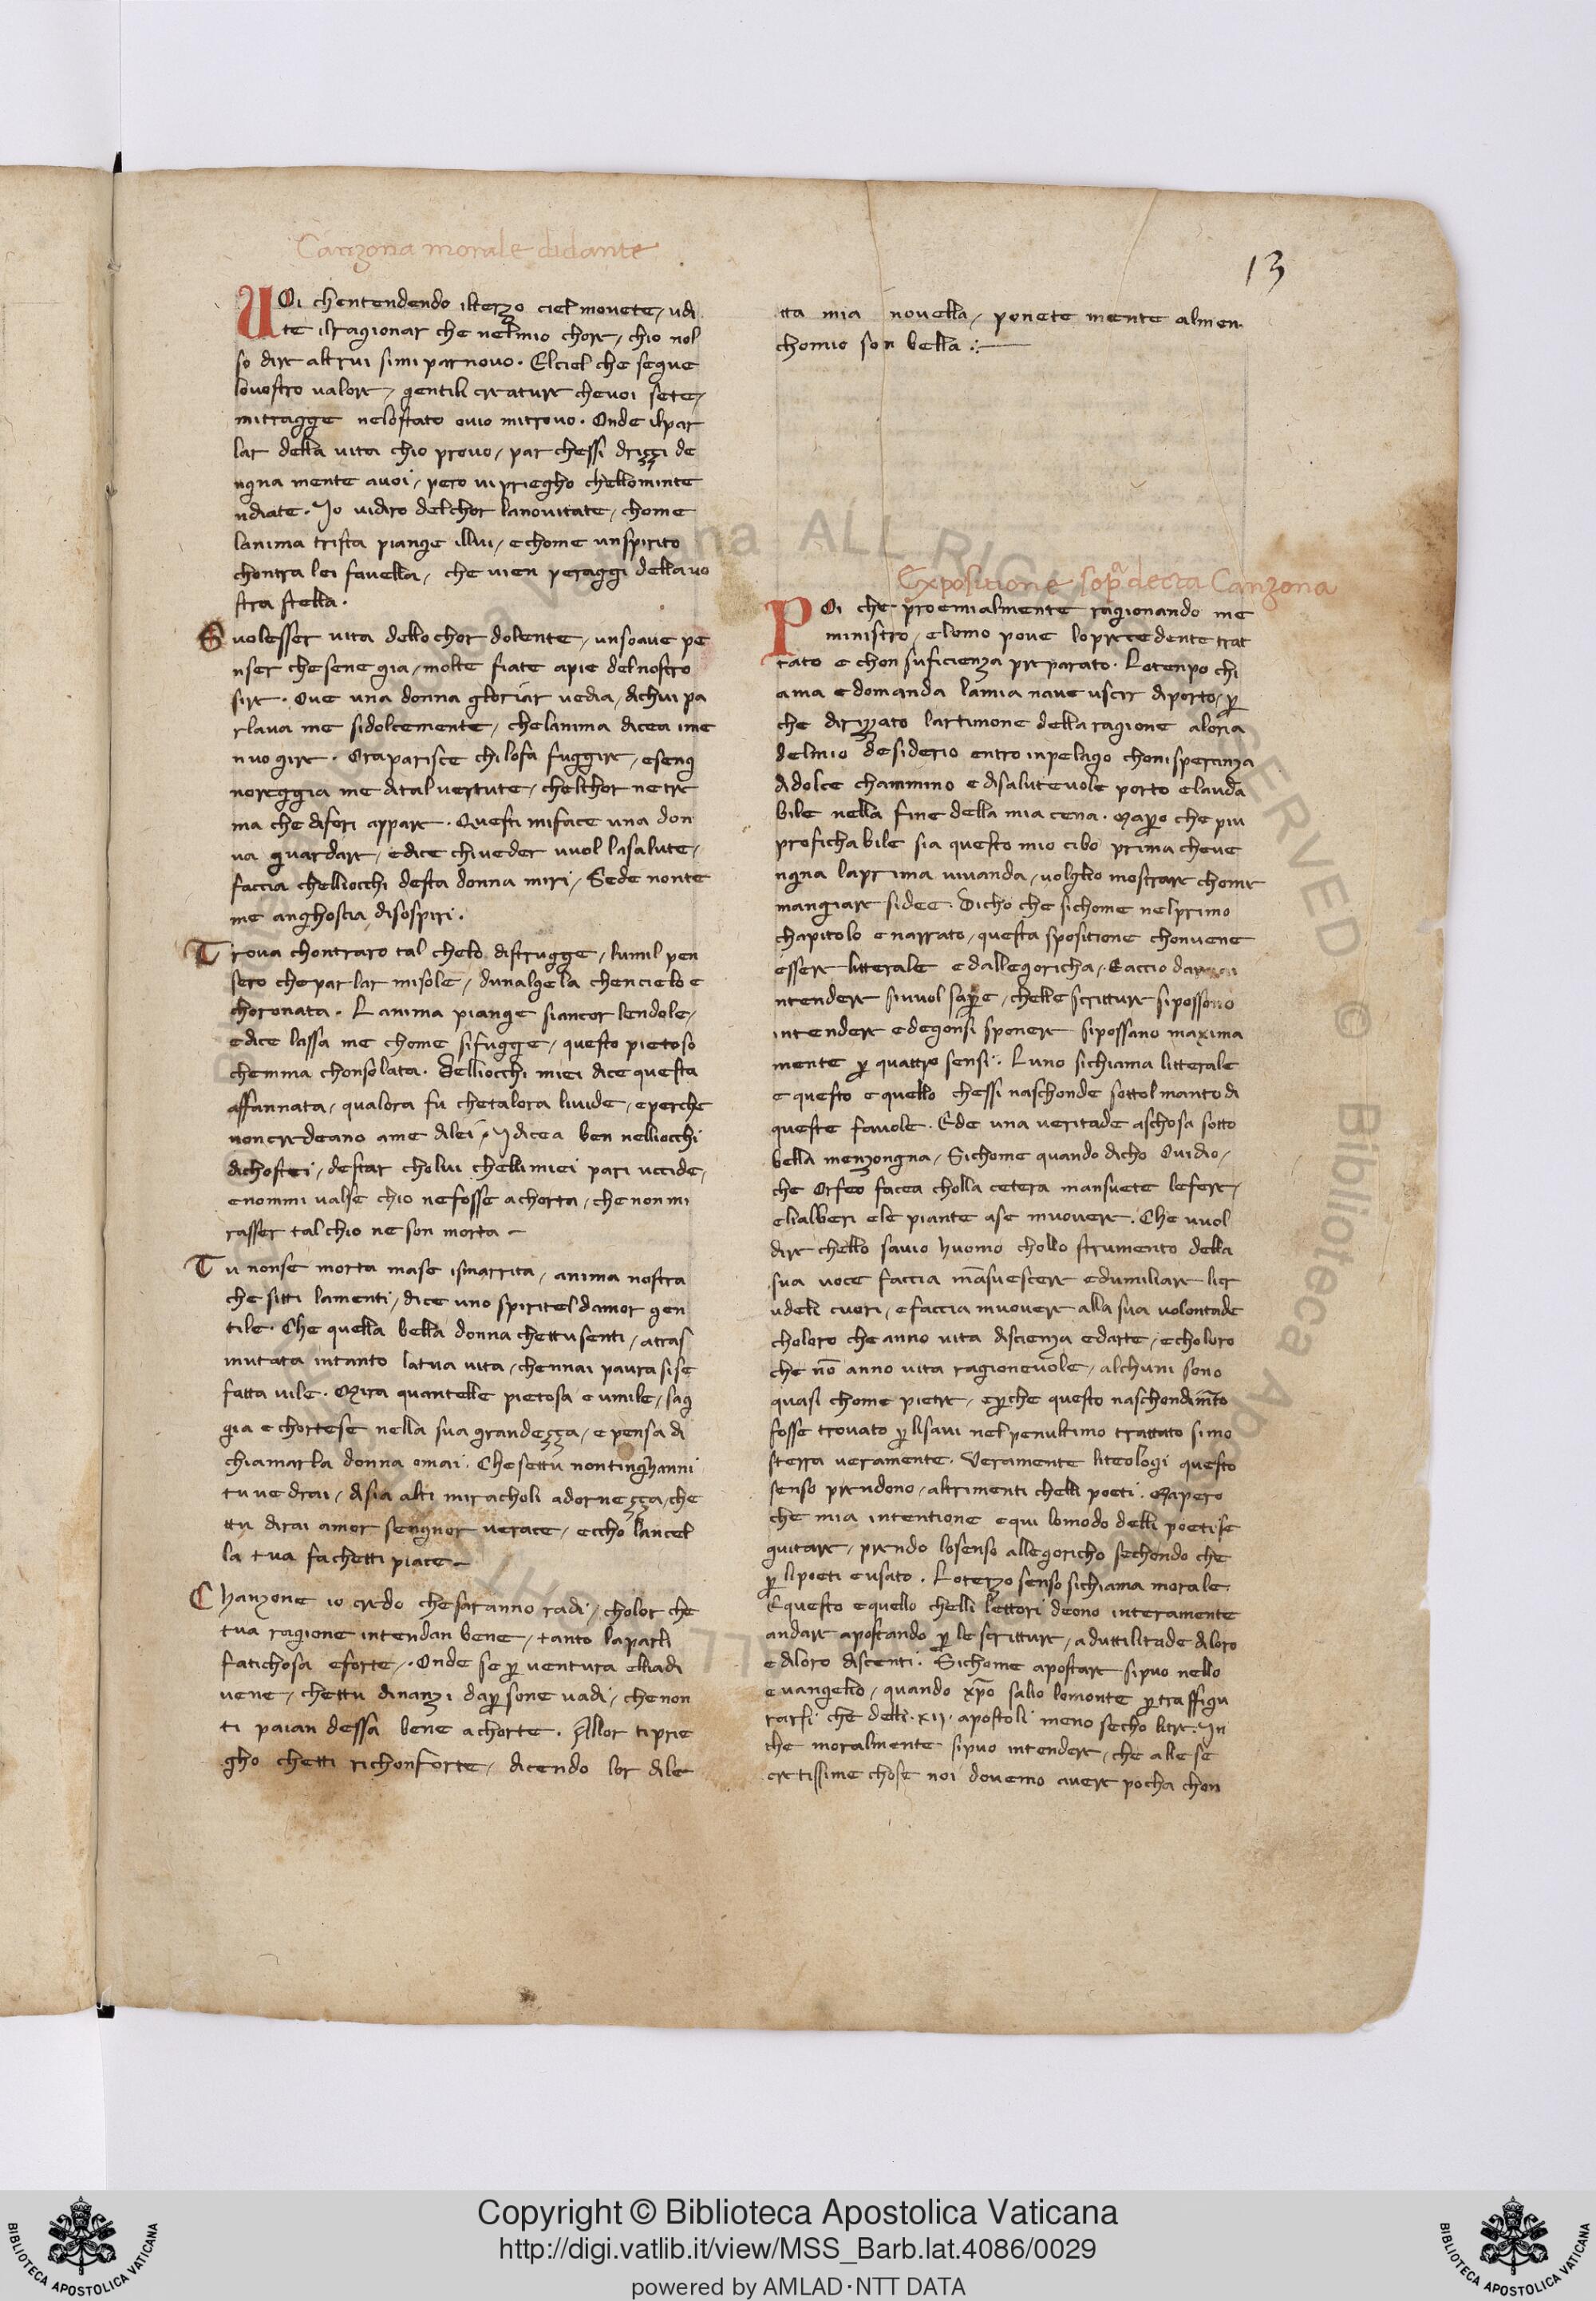 Canzona morale didante
13
UOi chentendendo ilterzo ciel movete / udi
te ilragionar che nelmio chore / chio nol
so dire altrui simi par novo . Elciel che segue
lovostro valore / gentili creature chevoi sete /
mitragge nelostato ovio mitrovo . Onde ilpar
lar della vita chio provo / par chessi drizzi de
ngna mente avoi / pero vi priegho chellominte
ndiate . Io vidiro delchor lanovitate / chome
lanima trista piange illui / e chome unspirito
chontra lei favella / che vien peraggi dellauo
stra stella .
S uolesser vita dello chor dolente / unsoave pe
nser chesene gia / molte fiate apie delnostro
sire . Ove una donna gloriar vedia / dichui pa
rlava me sidolcemente / chelanima dicea ime
nvo gire . Orapparisce chi lofa fuggire / eseng
noreggia me dital vertute / chelchor netre
ma che difori appare . Questi miface una don
na guardare / edice chiveder vuol lasalute /
faccia chelliocchi desta donna miri / Sede nonte
me anghoscia disospiri .
T rova chontraro tal chelo distrugge / lumil pen
sero cheparlar misole / dunalgela chencielo e
choronata . Lanima piange siancor lendole /
edice lassa me chome sifugge / questo pietoso
chemma chonsolata . Delliocchi miei dice questa
affannata / qualora fu chetalora livide / eperche
noncredeano ame dilei / Idicea ben nelliocchi
dichostei / destar cholui chellimiei pari uccide /
enommi valse chio nefosse achorta / chenonmi
rasser tal chio ne son morta
T u nonse morta mase ismarrita / anima nostra
che sitti lamenti / dice uno spiritel damor gen
tile . Che quella bella donna chettu senti / atras
mutata intanto latua vita / chennai paura sise
fatta vile . Mira quantelle pietosa e umile / sag
gia e chortese nella sua grandezza / e pensa di
chiamarla donna omai . Chesettu nontinghanni
tu vedrai / disia alti miracholi adornezza / che
ttu dirai amor sengnor verace / eccho lancel
la tua fachetti piace
C hanzone io credo chesaranno radi / cholor che
tua ragione intendan bene / tanto laparli
fatichosa eforte / . Onde se per ventura elliadi
vene / chettu dinanzi dapersone vadi / chenon
ti paian dessa bene achorte . Allor tiprie
gho chetti richonforte / dicendo lor dile
tta mia novella / ponete mente almen
chomio son bella .:
Expositione sopra decta Canzona
POi che proemialmente ragionando me
ministro / elomo pove loprecedente trat
tato e chon suficienza preparato . Lotenpo chi
ama edomanda lamia nave uscir diporto / per
che dirizzato lartimone della ragione aloria
delmio desiderio entro inpelago chonisperanza
didolce chammino edisalutevole porto elauda
bile nella fine della mia cena . Mapero che piu
profichabile sia questo mio cibo prima cheve
ngna laprima vivanda / volglio mostrare chome
mangiare sidee . Dicho che sichome nelprimo
chapitolo enarrato / questa spositione chonvene
essere litterale edallegoricha / . Eaccio dare
ntendere sivuol sapere / chelle scritture sipossono
intendere edegonsi sponere sipossano maxima
mente per quattro sensi . Luno sichiama litterale
e questo e quello chessi naschonde sottol manto di
queste favole . Ede una veritade aschosa sotto
bella menzongna / Sichome quando dicho Ovidio /
che Orfeo facea cholla cetera mansuete lefere /
elialberi ele piante ase muovere . Che vuol
dire chello savio huomo chollo strumento della
sua voce faccia mansuescere edumiliare licr
udeli cuori / efaccia muovere alla sua volontade
choloro che anno vita discienza edarte / echoloro
che non anno vita ragionevole / alchuni sono
quasi chome pietre / eperche questo naschondimento
fosse trovato per lisavi nel penultimo trattato simo
sterra veramente . Veramente liteologi questo
senso prendono / altrimenti chelli poeti . Mapero
che mia intentione equi lomodo delli poeti se
guitare / prendo losenso allegoricho sechondo che
per lipoeti eusato . Loterzo senso sichiama morale
Equesto equello chelli lettori deono interamente
andare apostando per le scritture / aduttilitade diloro
e diloro discenti . Sichome apostare sipuo nello
evangelio / quando xpo salio lomonte per traffigu
rarsi che delli . xij . apostoli meno secho litre . In
che moralmente sipuo intendere / che alle se
cretissime chose noi dovemo avere pocha chon
Copyright © Biblioteca Apostolica Vaticana
http://digi.vatlib.it/view/MSS_Barb.lat.4086/0029
powered by AMLAD·NTT DATA
BIBLIOTECA APOSTOLICA VATICANA
BIBLIOTECA APOSTOLICA VATICANA